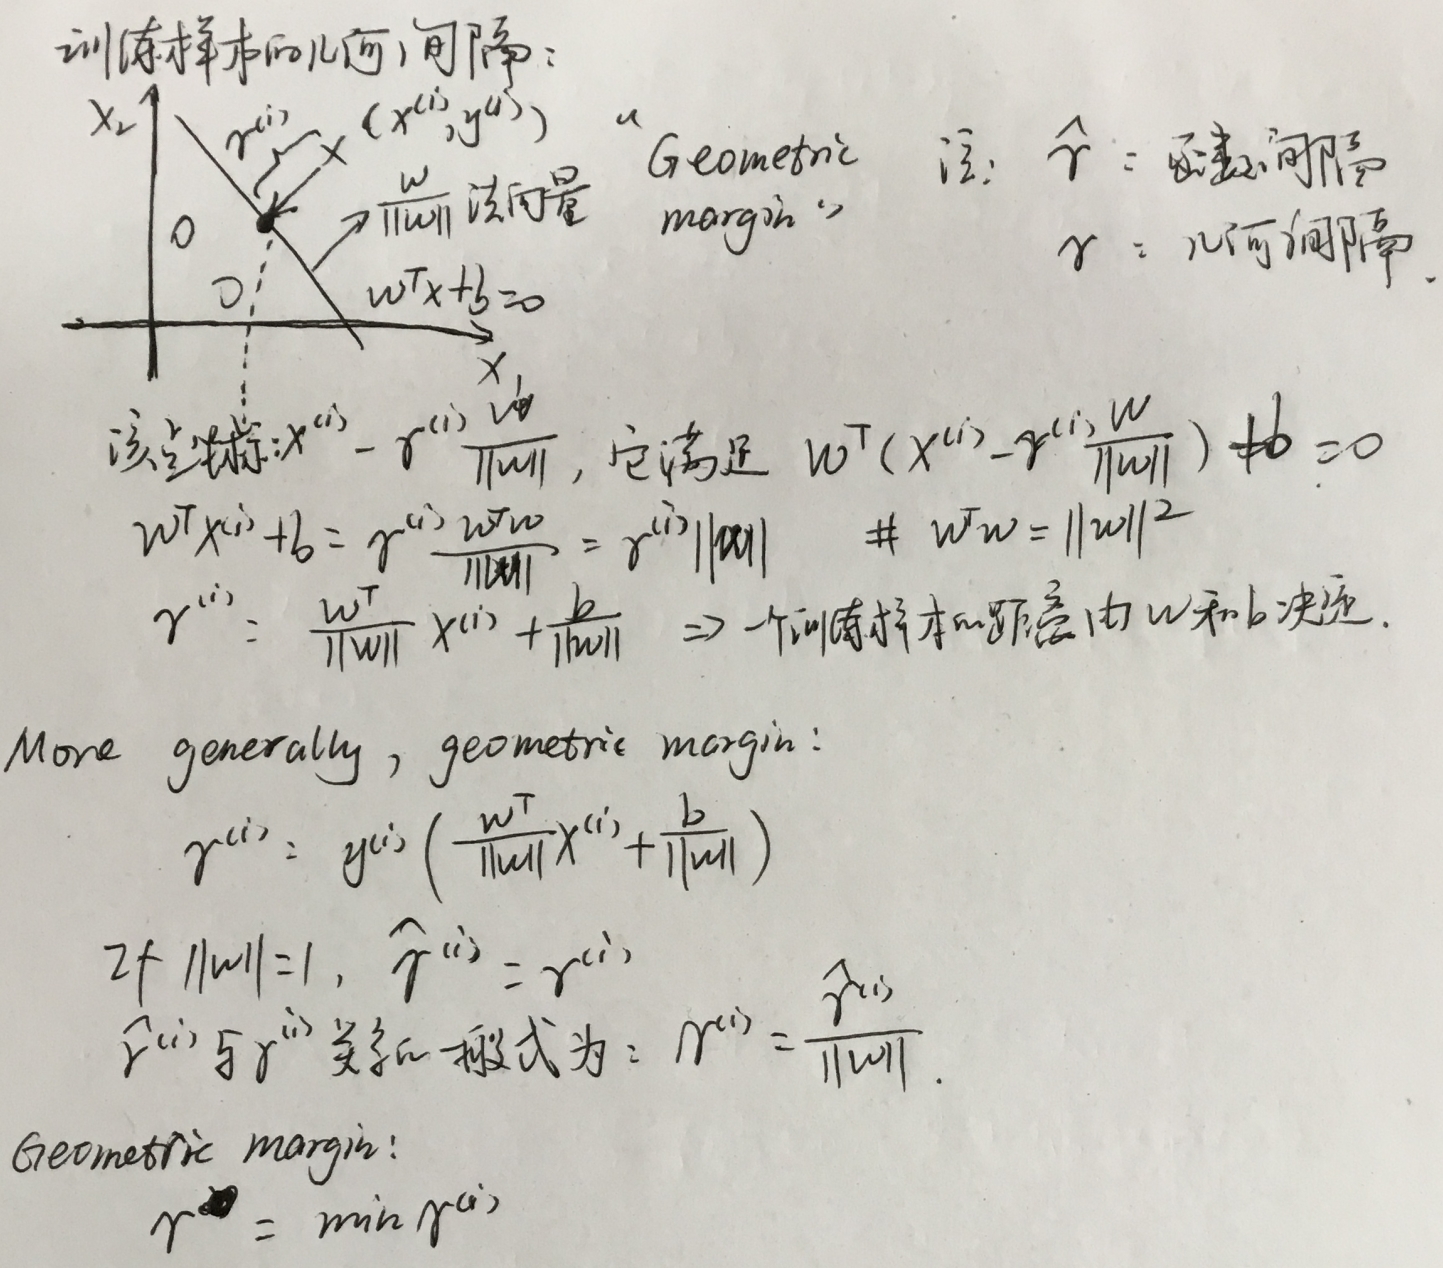 训练样本的几何间隔:
x₂ γ⁽ⁱ⁾ × (x⁽ⁱ⁾, y⁽ⁱ⁾)
"Geometric margin"
注: γ̂ : 函数间隔
γ : 几何间隔.
w/||w|| 法向量
O
O
wᵀx+b=0
x₁
该点坐标: x⁽ⁱ⁾ - γ⁽ⁱ⁾ w/||w||, 它满足 wᵀ(x⁽ⁱ⁾ - γ⁽ⁱ⁾ w/||w||) + b = 0
wᵀx⁽ⁱ⁾ + b = γ⁽ⁱ⁾ wᵀw/||w|| = γ⁽ⁱ⁾||w|| # wᵀw = ||w||²
γ⁽ⁱ⁾ = wᵀ/||w|| x⁽ⁱ⁾ + b/||w|| => 一个训练样本的距离由 w 和 b 决定.
More generally, geometric margin:
γ⁽ⁱ⁾ = y⁽ⁱ⁾ ( wᵀ/||w|| x⁽ⁱ⁾ + b/||w|| )
If ||w||=1, γ̂⁽ⁱ⁾ = γ⁽ⁱ⁾
γ̂⁽ⁱ⁾ 与 γ⁽ⁱ⁾ 关系的一般式为: γ⁽ⁱ⁾ = γ̂⁽ⁱ⁾/||w||.
Geometric margin:
γ = min γ⁽ⁱ⁾